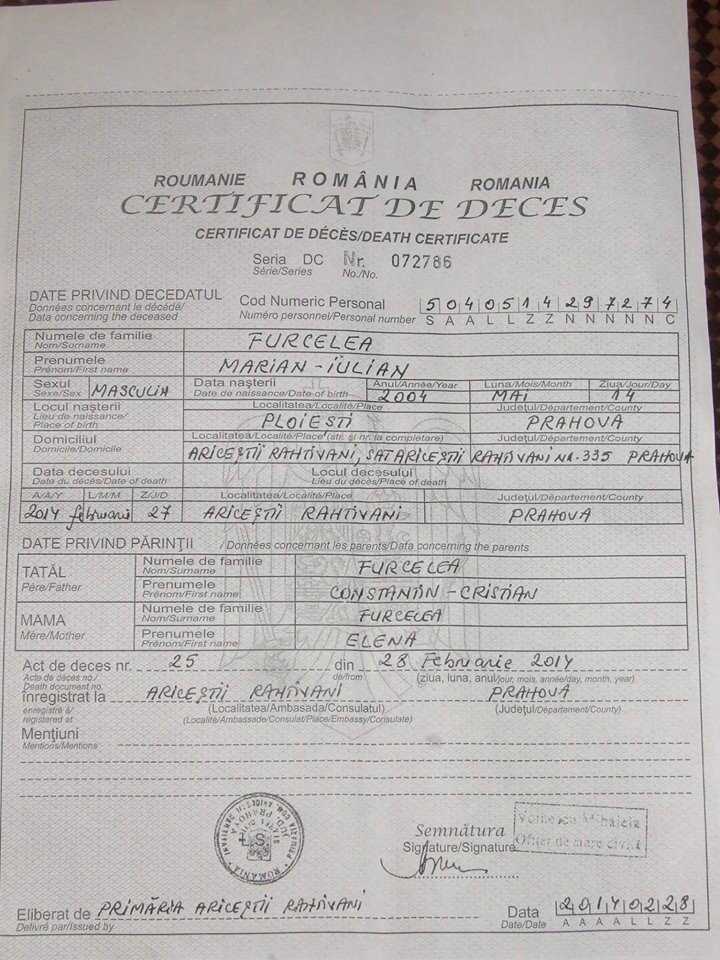 ROUMANIE ROMÂNIA ROMANIA
CERTIFICAT DE DECES
CERTIFICAT DE DÉCÈS/DEATH CERTIFICATE
Seria DC Nr. 072786
Série/Series No./No.
DATE PRIVIND DECEDATUL Cod Numeric Personal 5040514297274
Données concernant le décédé/ Numéro personnel/Personal number S A A L L Z Z N N N N N C
Data concerning the deceased
Numele de familie FURCELEA
Nom/Surname
Prenumele MARIAN-IULIAN
Prénom/First name
Sexul MASCULIN Data naşterii Anul/Année/Year Luna/Mois/Month Ziua/Jour/Day
Sexe/Sex Date de naissance/Date of birth 2004 MAI 14
Locul naşterii Localitatea/Localité/Place Judeţul/Département/County
Lieu de naissance/ PLOIESTI PRAHOVA
Place of birth
Domiciliul Localitatea/Localité/Place (str. şi nr. la completare) Judeţul/Département/County
Domicile/Domicile ARICEŞTII RAHTIVANI, SAT ARICEŞTII RAHTIVANI NR. 335 PRAHOVA
Data decesului Locul decesului
Date du décès/Date of death Lieu du décès/Place of death
A/A/Y L/M/M Z/J/D Localitatea/Localité/Place Judeţul/Département/County
2014 februarie 27 ARICEŞTII RAHTIVANI PRAHOVA
DATE PRIVIND PĂRINŢII / Données concernant les parents/Data concerning the parents
TATĂL Numele de familie FURCELEA
Père/Father Nom/Surname
Prenumele CONSTANTIN-CRISTIAN
Prénom/First name
MAMA Numele de familie FURCELEA
Mère/Mother Nom/Surname
Prenumele ELENA
Prénom/First name
Act de deces nr. 25 din 28 Februarie 2014
Acte de décès no./ de/from (ziua, luna, anul/jour, mois, année/day, month, year)
Death document no.
înregistrat la ARICEŞTII RAHTIVANI PRAHOVA
enregistré à/ (Localitatea/Ambasada/Consulatul) (Judeţul/Département/County)
registered at (Localité/Ambassade/Consulat/Place/Embassy/Consulate)
Menţiuni
Mentions/Mentions
ROMANIA
JUD. PRAHOVA
L.S.
Semnătura
Signature/Signature
Mihaela
Ofiţer de stare civilă
Eliberat de PRIMĂRIA ARICEŞTII RAHTIVANI Data 20140228
Délivré par/Issued by Date/Date A A A A L L Z Z